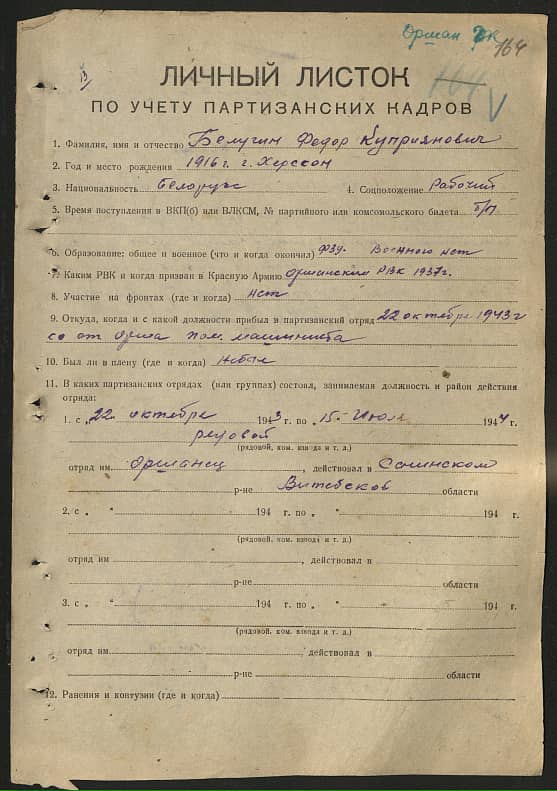 Оршан РК 164
ЛИЧНЫЙ ЛИСТОК
ПО УЧЕТУ ПАРТИЗАНСКИХ КАДРОВ
1. Фамилия, имя и отчество Белугин Федор Куприянович
2. Год и место рождения 1916 г. г. Херсон
3. Национальность белорус 4. Соцположение Рабочий
5. Время поступления в ВКП(б) или ВЛКСМ, № партийного или комсомольского билета б/п
6. Образование: общее и военное (что и когда окончил) ФЗУ. Военного нет
7. Каким РВК и когда призван в Красную Армию Оршанским РВК 1937 г.
8. Участие на фронтах (где и когда) нет
9. Откуда, когда и с какой должности прибыл в партизанский отряд 22 октября 1943 г
со ст Орша пом. машиниста
10. Был ли в плену (где и когда) не был
11. В каких партизанских отрядах (или группах) состоял, занимаемая должность и район действия
отряда:
1. с „22. октября 1943 г. по „15 Июля 1944 г.
рядовой
(рядовой, ком. взвода и т. д.)
отряд им. Оршанец, действовал в Сенинском
р-не Витебской области
2. с „ “ 194 г. по „ “ 194 г.
(рядовой, ком. взвода и т. д.)
отряд им , действовал в
р-не области
3. с „ “ 194 г. по „ “ 194 г.
(рядовой, ком. взвода и т. д.)
отряд им. , действовал в
р-не области
12. Ранения и контузии (где и когда)